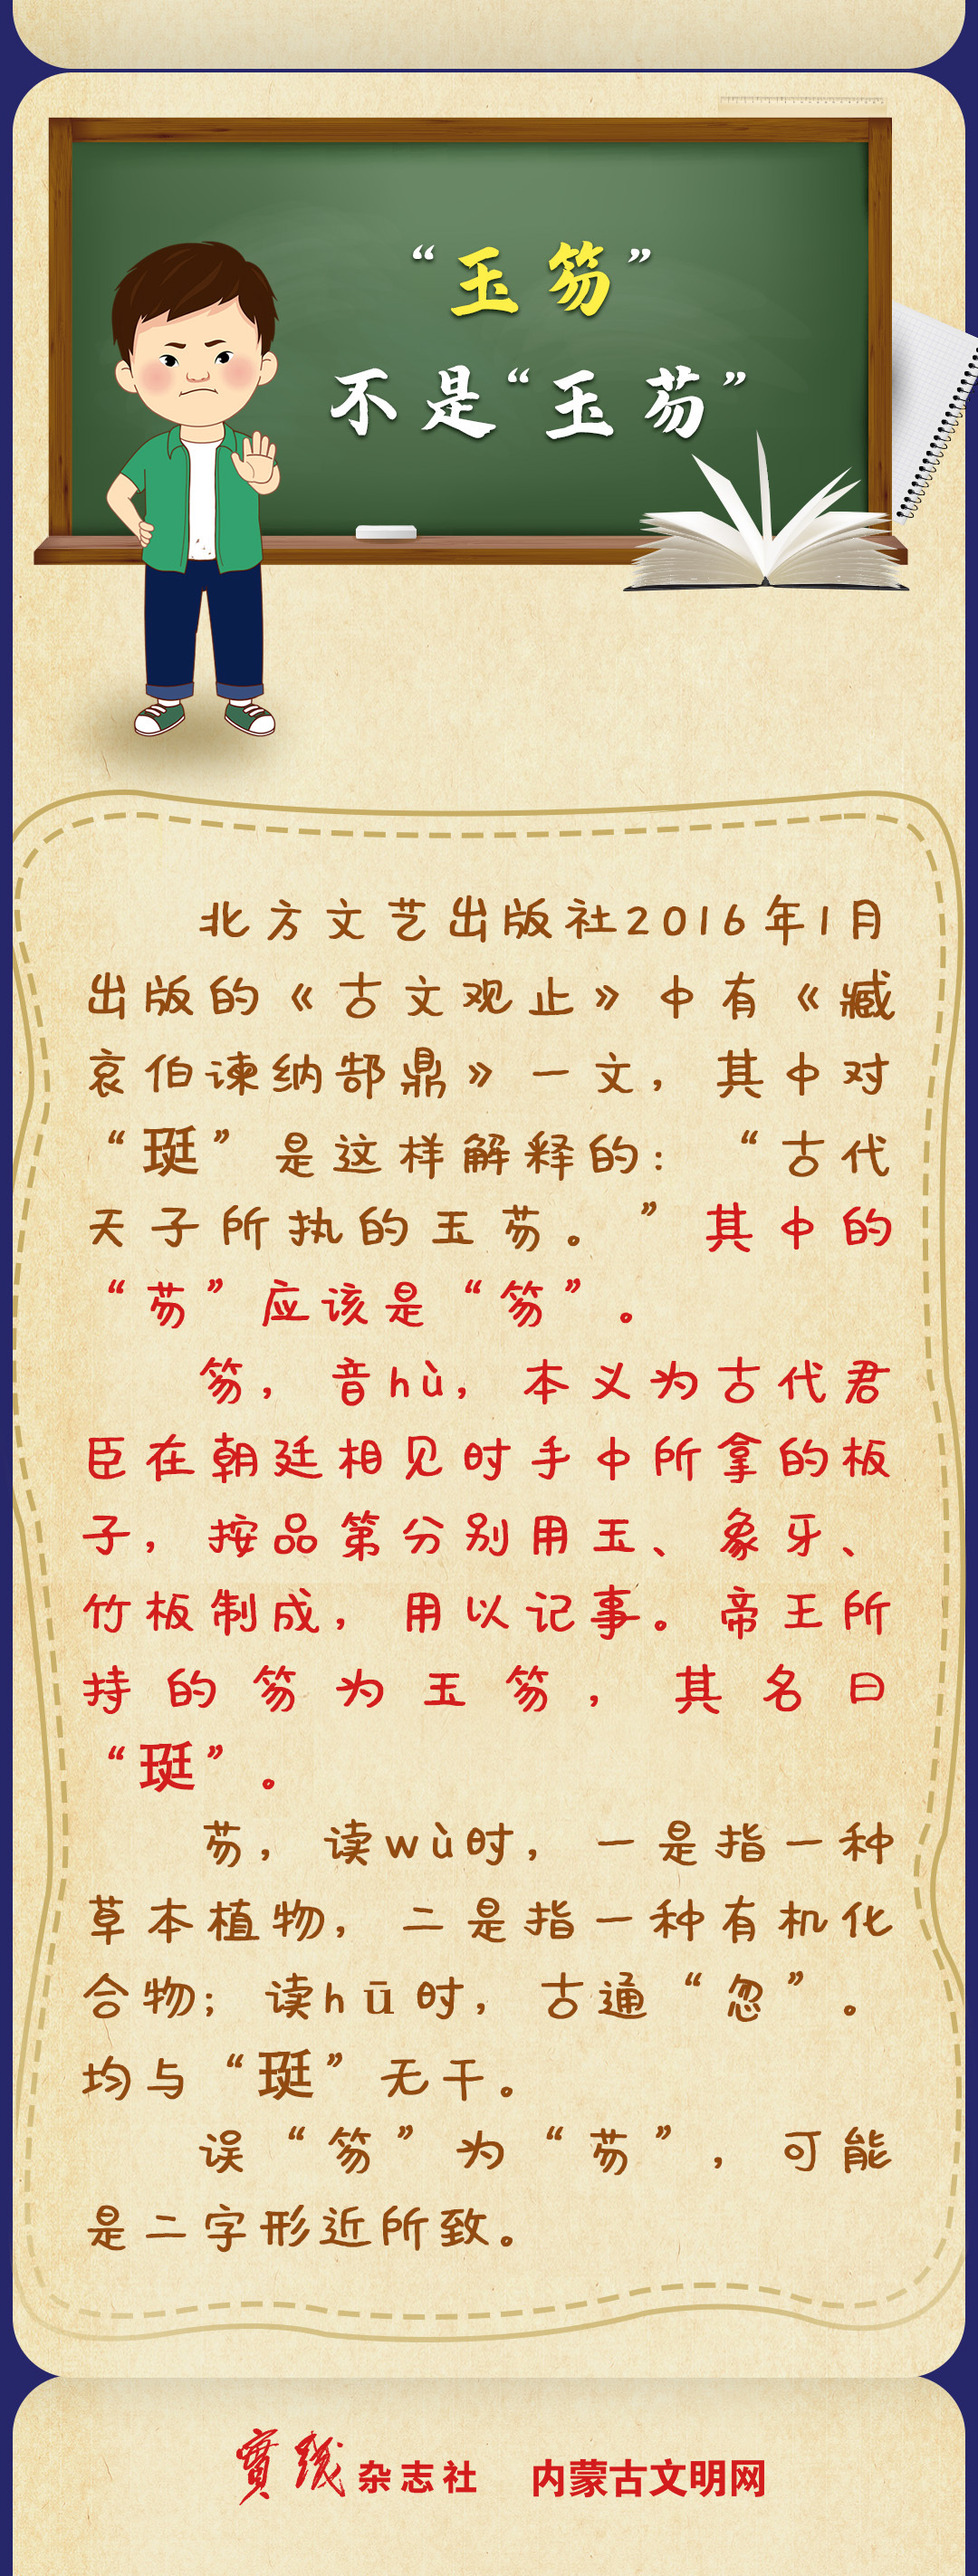 “玉笏”
不是“玉芴”
北方文艺出版社2016年1月
出版的《古文观止》中有《臧
哀伯谏纳郜鼎》一文，其中对
“珽”是这样解释的：“古代
天子所执的玉芴。”其中的
“芴”应该是“笏”。
笏，音hù，本义为古代君
臣在朝廷相见时手中所拿的板
子，按品第分别用玉、象牙、
竹板制成，用以记事。帝王所
持的笏为玉笏，其名曰
“珽”。
芴，读wù时，一是指一种
草本植物，二是指一种有机化
合物；读hū时，古通“忽”。
均与“珽”无干。
误“笏”为“芴”，可能
是二字形近所致。
實践杂志社 内蒙古文明网